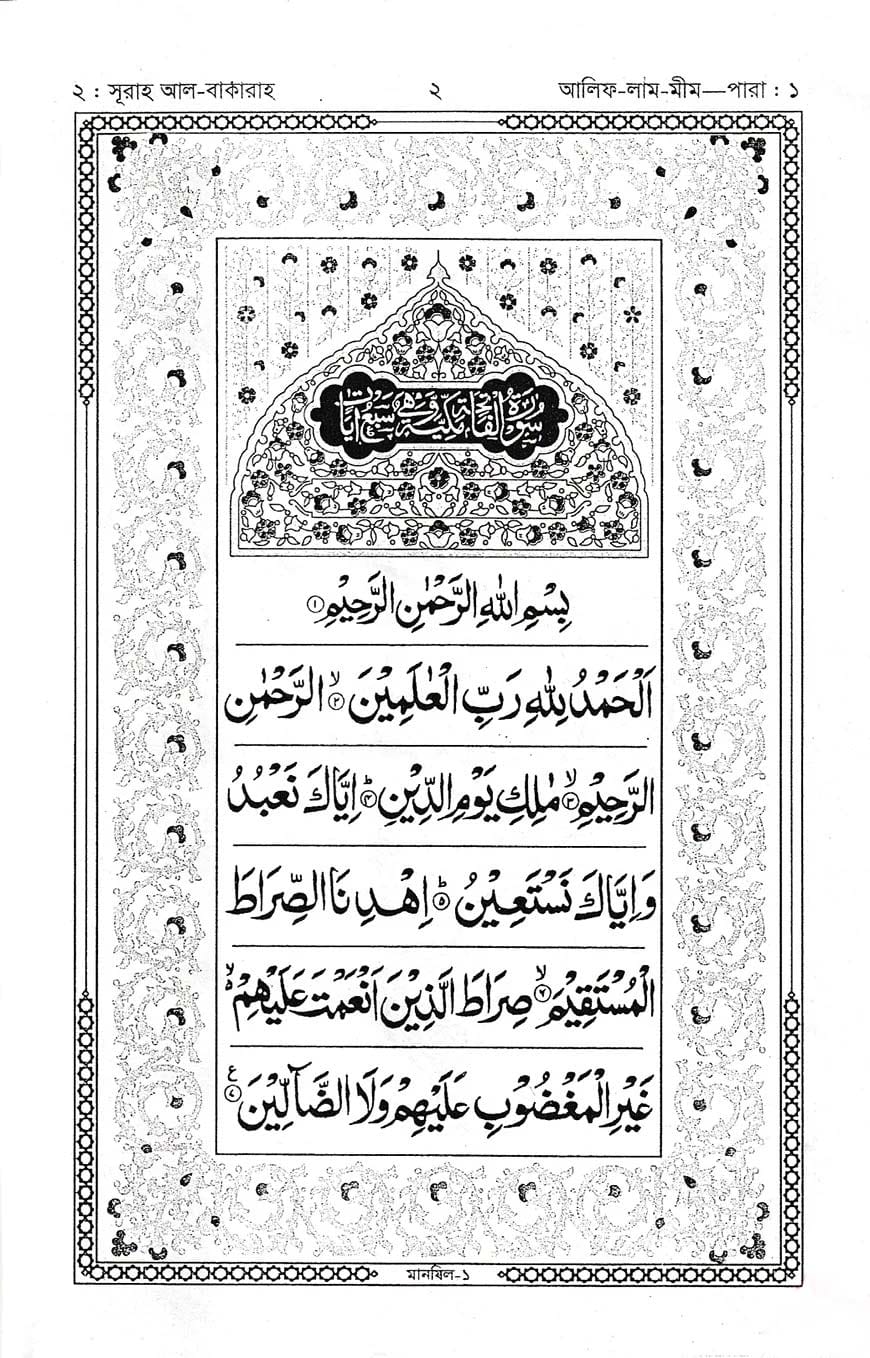 ২ : সূরাহ আল-বাকারাহ ২ আলিফ-লাম-মীম—পারা : ১
سُوْرَةُ الْفَاتِحَةِ مَكِّيَّةٌ وَّهِيَ سَبْعُ اٰيَاتٍ
بِسْمِ اللهِ الرَّحْمٰنِ الرَّحِيْمِ ۝١
اَلْحَمْدُ لِلّٰهِ رَبِّ الْعٰلَمِيْنَ ۝٢ۙ الرَّحْمٰنِ
الرَّحِيْمِ ۝٣ۙ مٰلِكِ يَوْمِ الدِّيْنِ ۝٤ؕ اِيَّاكَ نَعْبُدُ
وَاِيَّاكَ نَسْتَعِيْنُ ۝٥ؕ اِهْدِنَا الصِّرَاطَ
الْمُسْتَقِيْمَ ۝٦ۙ صِرَاطَ الَّذِيْنَ اَنْعَمْتَ عَلَيْهِمْ ۙ۬
غَيْرِ الْمَغْضُوْبِ عَلَيْهِمْ وَلَا الضَّآلِّيْنَ ۝٧ع
মানযিল-১